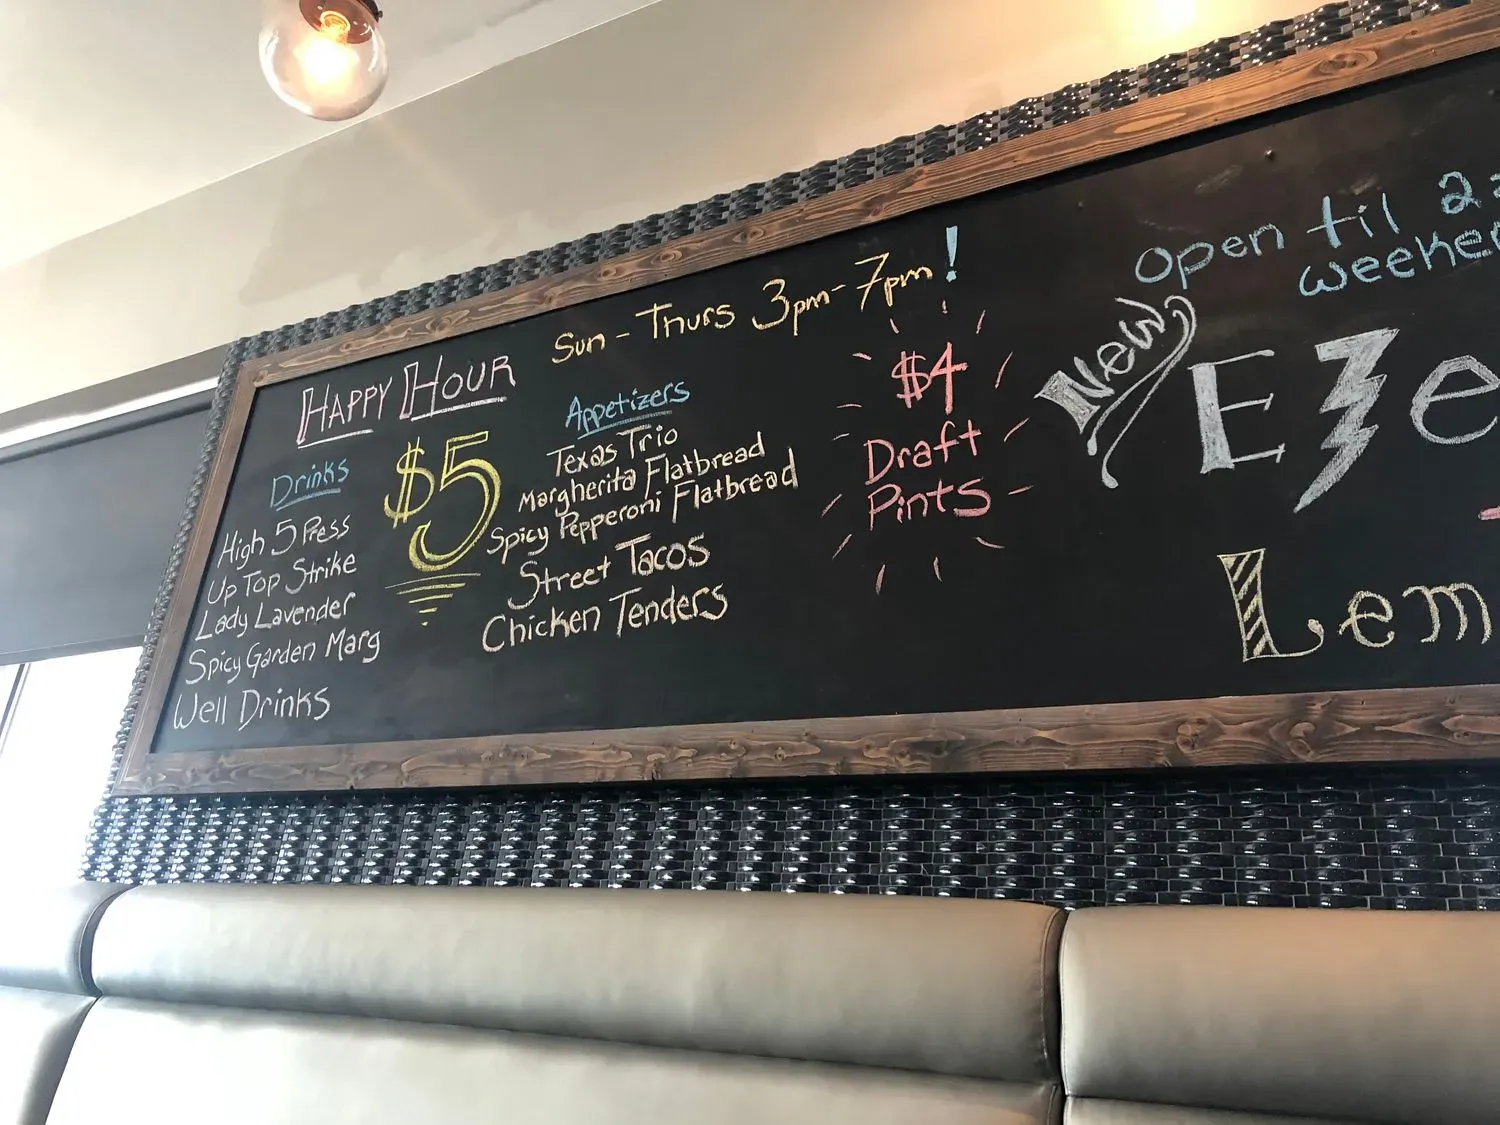 Happy Hour
Sun - Thurs 3pm-7pm!
Drinks
High 5 Press
Up Top Strike
Lady Lavender
Spicy Garden Marg
Well Drinks
$5
Appetizers
Texas Trio
Margherita Flatbread
Spicy Pepperoni Flatbread
Street Tacos
Chicken Tenders
$4
Draft
Pints
Open til
New